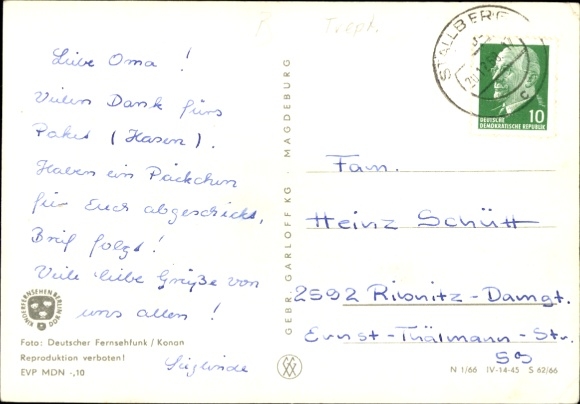 Liebe Oma !
Vielen Dank fürs
Paket (Hasen).
Haben ein Päckchen
für Euch abgeschickt,
Brief folgt!
Viele liebe Grüße von
uns allen !
Sieglinde
KINDERFERNSEHEN BERLIN
Foto: Deutscher Fernsehfunk / Konan
Reproduktion verboten!
EVP MDN -,10
GEBR. GARLOFF KG · MAGDEBURG
STALLBERG
DEUTSCHE
DEMOKRATISCHE REPUBLIK
10
Fam.
Heinz Schütt
2592 Ribnitz-Damgt.
Ernst-Thälmann-Str.
N 1/66 IV-14-45 S 62/66